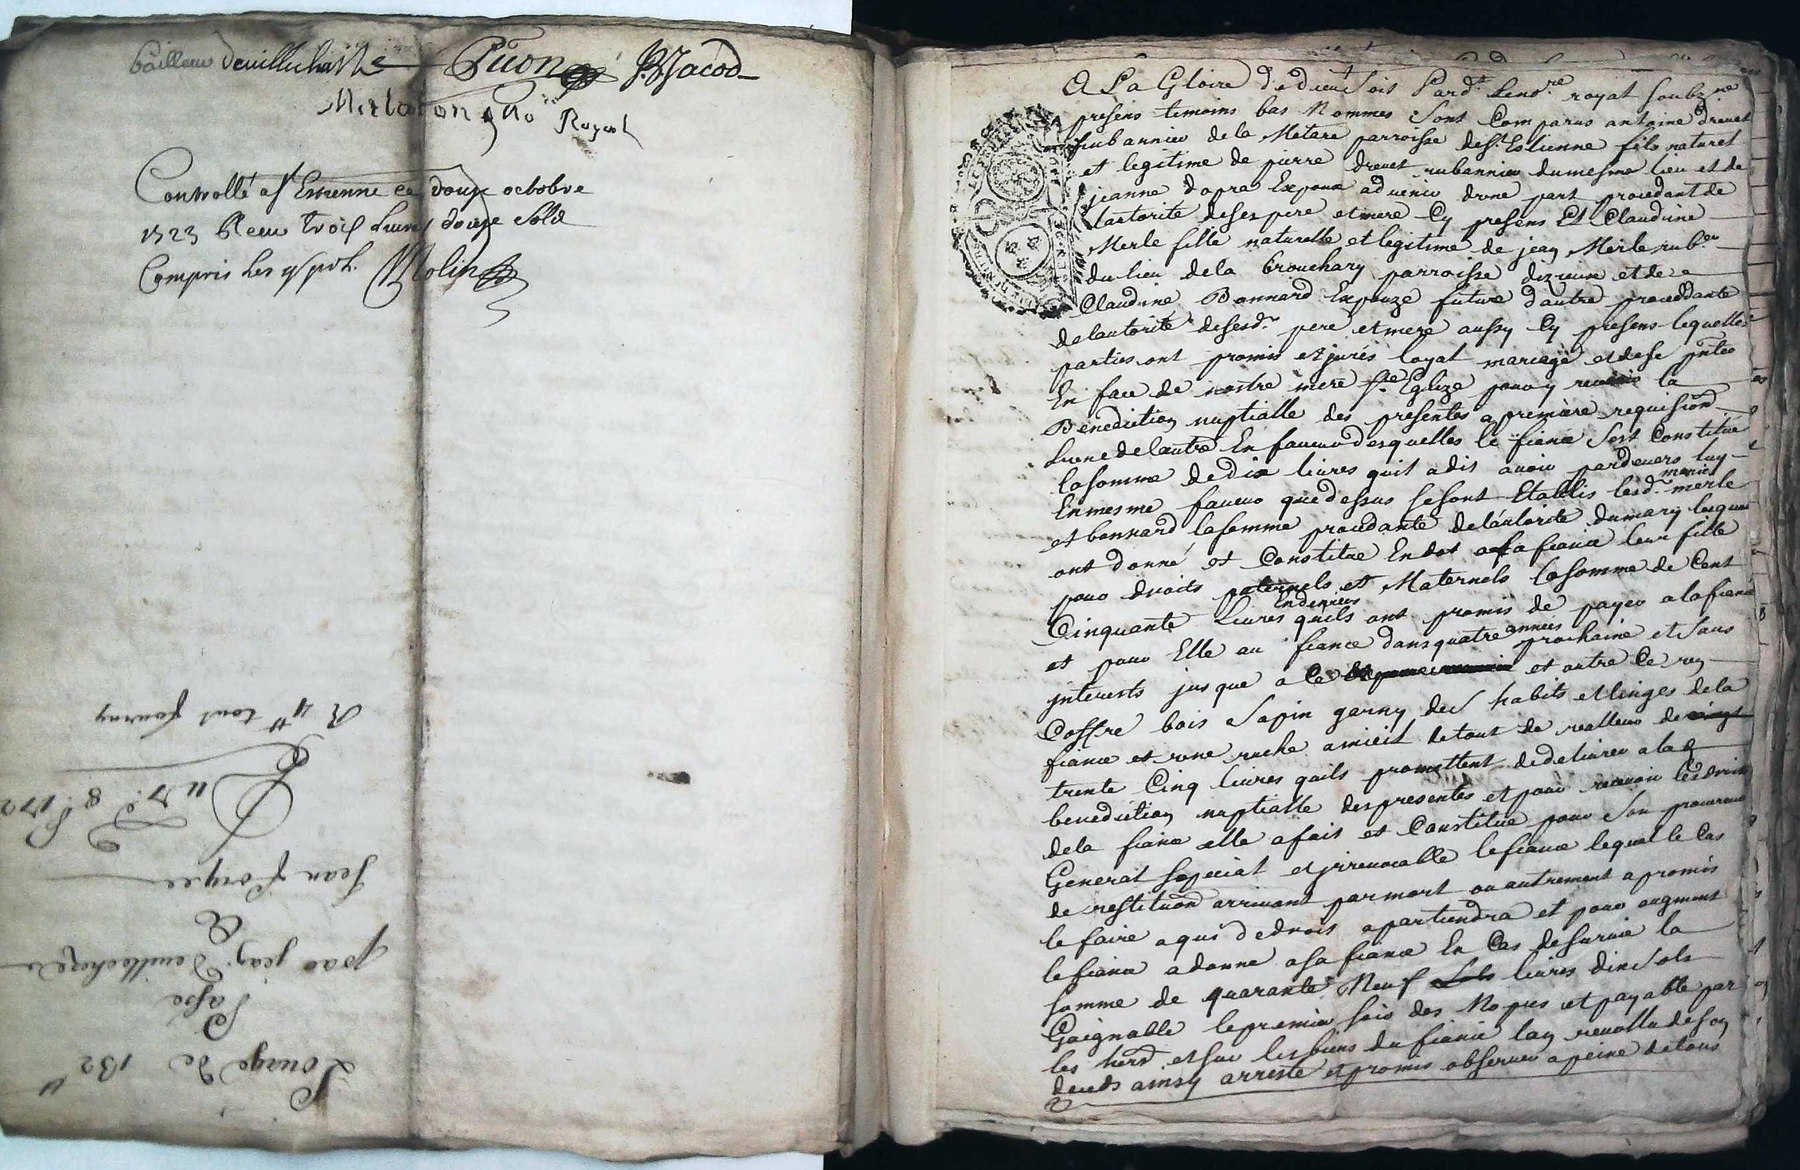 bailleur devillechaize Puon J B Jacod
Merlaton no.re Royal
Controllé a st Estienne ce douze octobre
1723 Receu trois livres douze sols
Compris les
Molin
R 4tt tout fourny
Jean
pour jean
Pape
Louage de 132tt
A La Gloire de Dieu soit Pard.t Leno.re royal soubz.ne
presens temoins bas Nommes sont Comparus antoine drevet
rubannier de la Metare parroisse dest Estienne fils naturel
et legitime de pierre drevet rubannier dumesme lieu et de
jeanne dapra Expoux advenir dune part procedant de
lautorité deses pere etmere Cy presens Et Claudine
Merle fille naturelle et legitime de jean Merle rub.er
du lieu dela brouchary parroisse dizieure et de
Claudine Bonnard Expouze future dautre procedante
delautorité desesd. pere etmere aussy Cy presens lequelles
parties ont promis et jurés loyal mariage et de se pntes
En face de nostre mere ste Eglize pour y recevoir la
Benediction nuptialle des presentes a premiere requision
Lune delautre En faveur desquelles le fiancé sest Constitué
la somme de dix livres quil a dit avoir pardevers luy
Enmesme faveur que dessus se sont Etablis lesd. mariés merle
et bonnard la femme procedante de lautorité dumary lesquels
ont donné et Constitué En dot a la fiancé leur fille
pour droits paternels et Maternels la somme de Cent
Cinquante Livres Endeniers quils ont promis de payer a la fiancé
et pour Elle au fiancé dans quatre années prochaine et sans
interests jusque a Ce et outre Ce un
Coffre bois sapin garny des habits et linges de la
fiancé et une ruche a miel detout de valleur de vingt
trente Cinq livres quils promettent de delivrer a la
benediction nuptialle des presentes et pour recevoir les droits
dela fiancé elle a fait et Constitué pour son procureur
General special et jrrevocable le fiancé lequel le Cas
de restituon arrivant par mort ou autrement a promis
le faire a qui de droit apartiendra et pour augment
le fiancé a donné a sa fiancé En Cas de survie la
somme de quarante Neuf livres dix sols
Gaignable le premier soir des Nopces et payable par
les hers et sur les biens du fiancé lan revollu de son
deceds ainsy arresté et promis observer a peine de tous